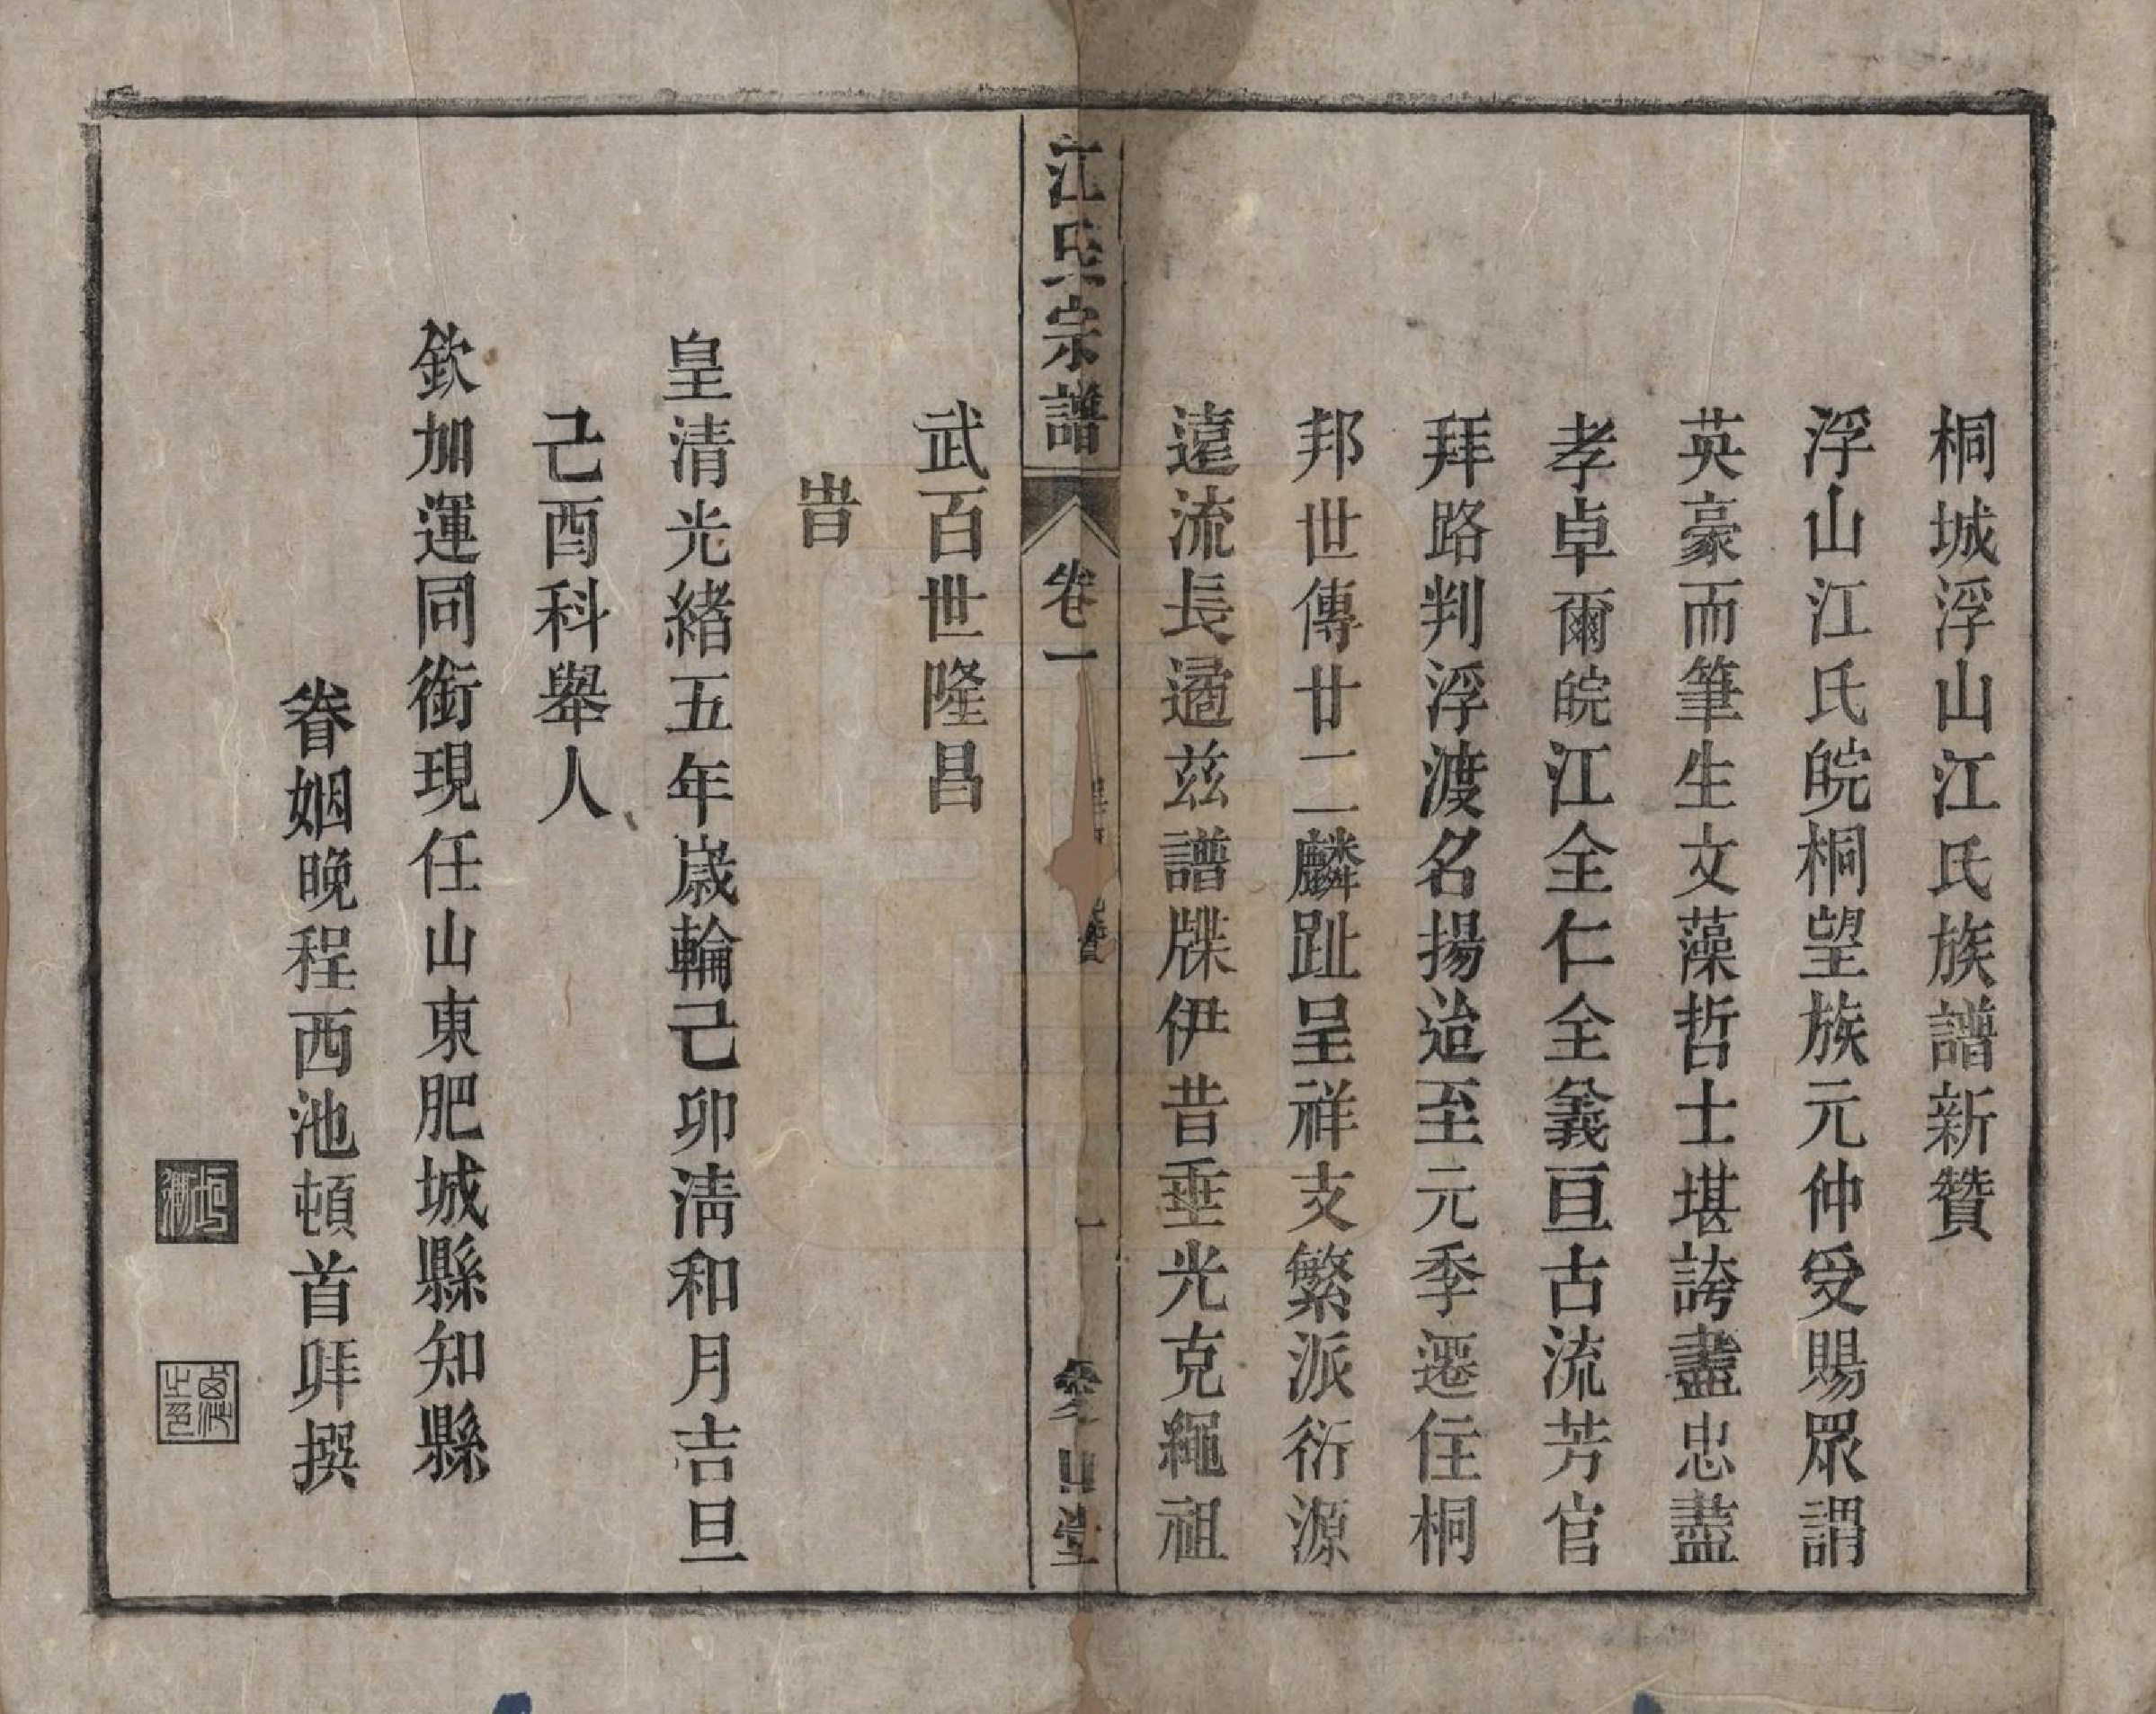 桐城浮山江氏族譜新贊
浮山江氏皖桐望族元仲受賜眾謂
英豪而筆生文藻哲士堪誇盡忠盡
孝卓爾皖江全仁全義亘古流芳官
拜路判浮渡名揚迨至元季遷住桐
邦世傳廿二麟趾呈祥支繁派衍源
遠流長遹茲譜牒伊昔垂光克繩祖
江氏宗譜
卷一
一
愛日堂
武百世隆昌
旹
皇清光緒五年歲輪己卯清和月吉旦
己酉科舉人
欽加運同銜現任山東肥城縣知縣
眷姻晚程西池頓首拜撰